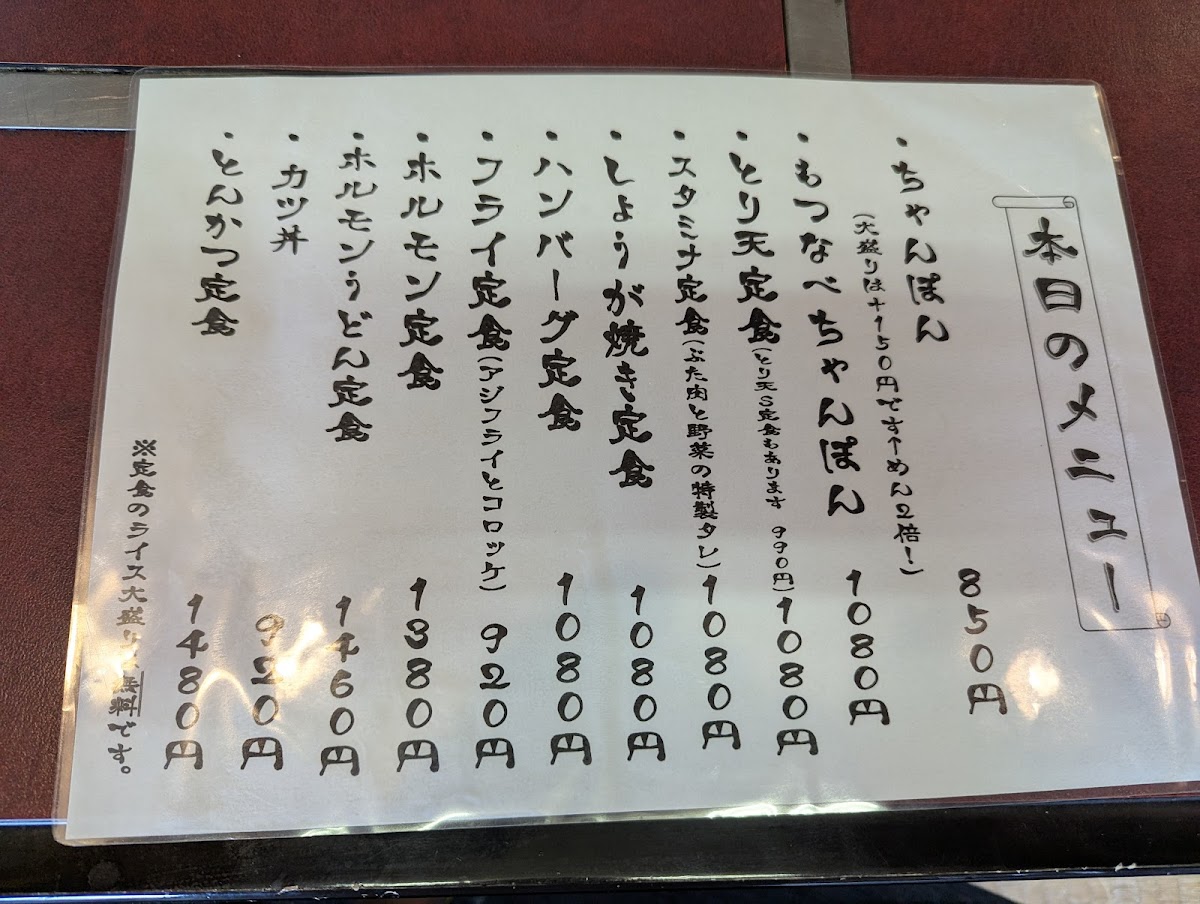 本日のメニュー
・ちゃんぽん 850円
(大盛りは+150円です↑めん2倍!)
・もつなべちゃんぽん 1080円
・とり天定食(とり天S定食もあります 990円) 1080円
・スタミナ定食(ぶた肉と野菜の特製タレ) 1080円
・しょうが焼き定食 1080円
・ハンバーグ定食 1080円
・フライ定食(アジフライとコロッケ) 920円
・ホルモン定食 1380円
・ホルモンうどん定食 1460円
・カツ丼 920円
・とんかつ定食 1480円
※定食のライス大盛りは無料です。